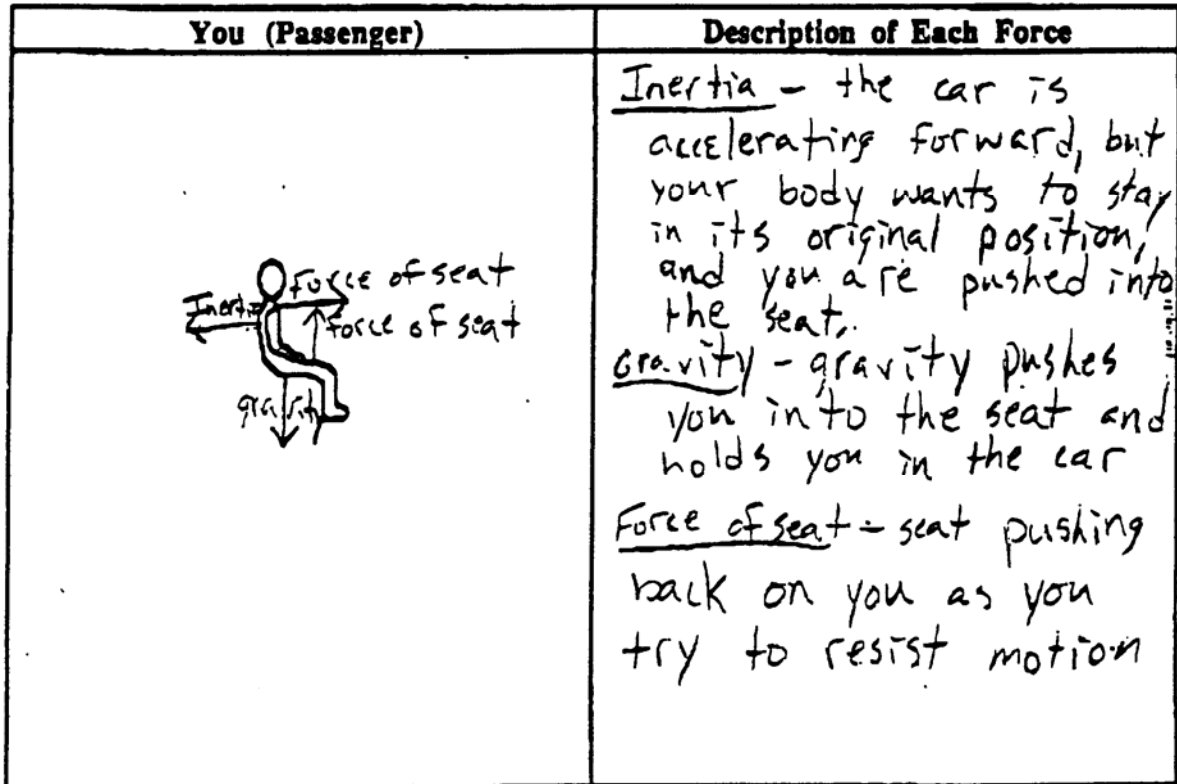 You (Passenger)
Description of Each Force
Force of seat
Inertia
force of seat
gravity
Inertia - the car is
accelerating forward, but
your body wants to stay
in its original position,
and you are pushed into
the seat.
Gravity - gravity pushes
you into the seat and
holds you in the car
Force of seat - seat pushing
back on you as you
try to resist motion